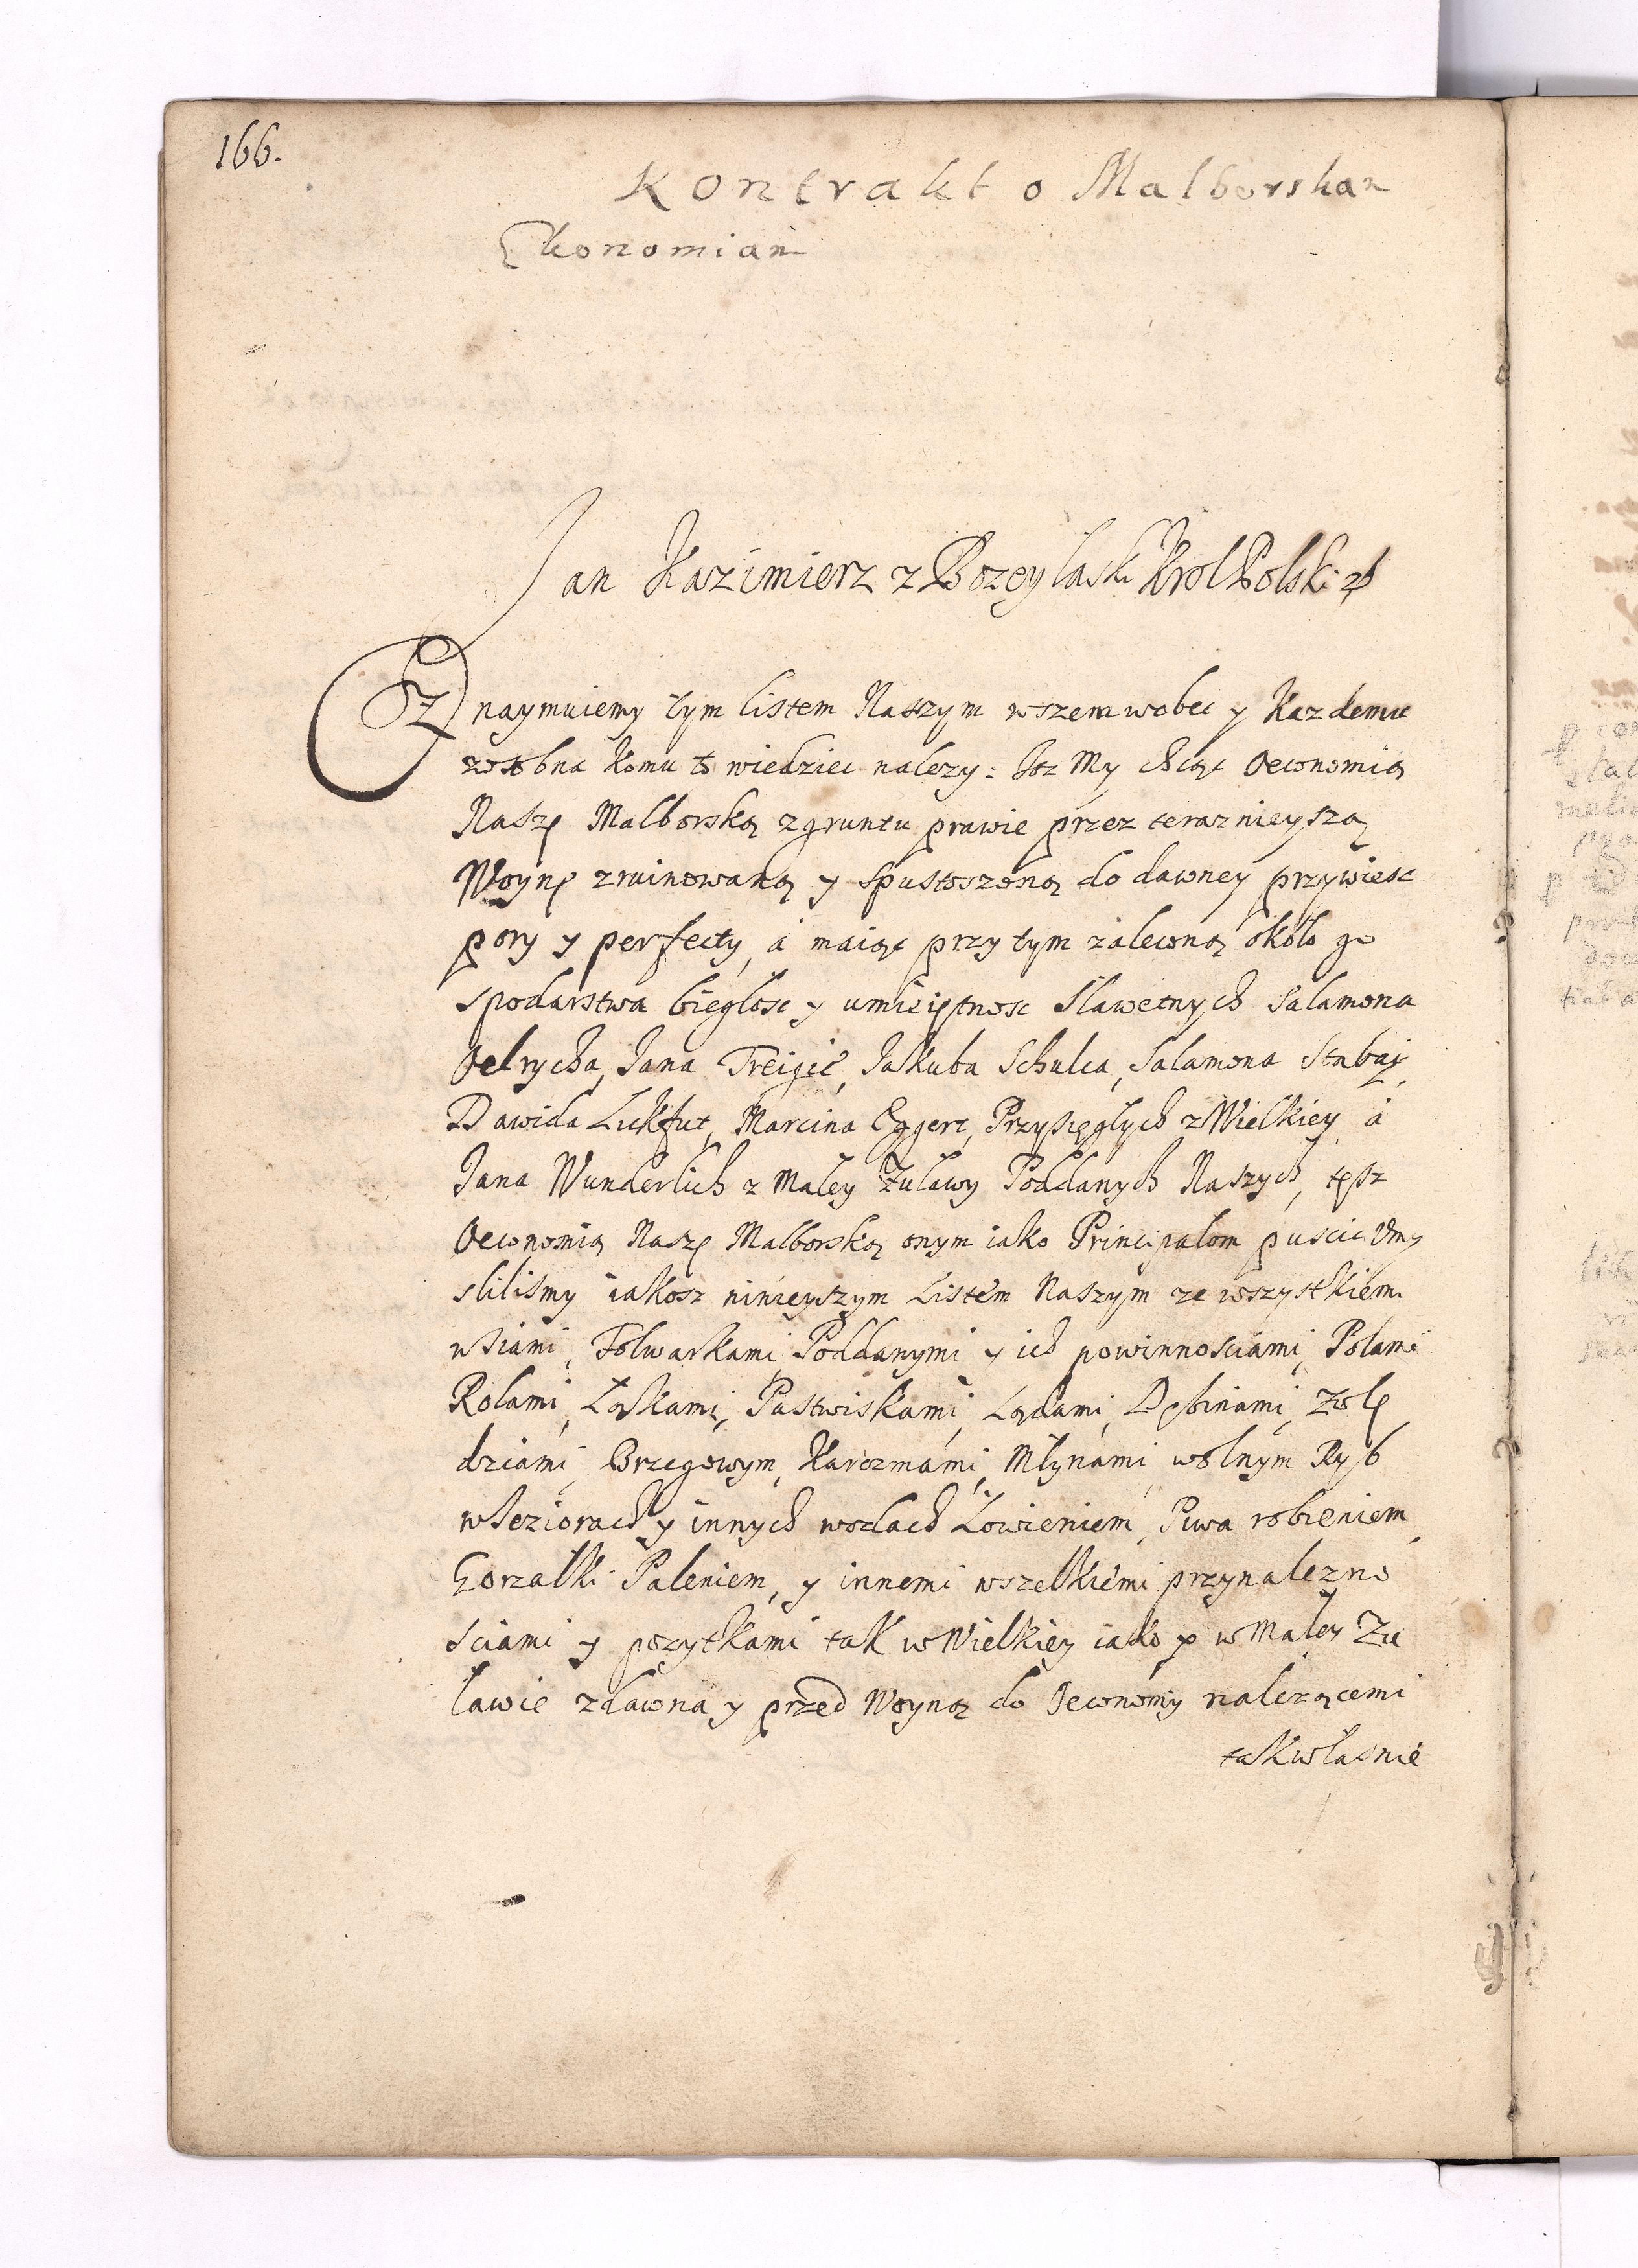 166.
Kontrakt o Malborskan
Ekonomian
Jan Kazimierz z Bozey laski Krol Polski
Oznaymuiemy tym listem Naszym wszem wobec y Kazdemu
zosobna Komu to wiedziec nalezy: Isz My chcąc Oeconomią
Naszę Malborską zgruntu prawie przez teraznieyszą
Woynę zruinowaną y spustoszoną do dawney przywiesc
pory y perfecty, a maiąc przy tym zaleconą około go
spodarstwa biegłosc y umieiętnosc Sławetnych Salamona
Oelrycha, Jana Treigie, Jakuba Schulca, Salamona Stabay,
Dawida Lickfut, Marcina Eggert, Przysięgłych z Wielkiey, a
Jana Wunderlich z Małey Żuławy Poddanych Naszych, tęsz
Oeconomią Naszę Malborską onym iako Principalom puscic Vmy
slilismy iakosz ninieyszym Listem Naszym ze wszystkiemi
wsiami, Folwarkami, Poddanymi y ich powinnosciami, Polami
Rolami, Ląkami, Pastwiskami, Lądami, Dębinami, Zolę
dziami, Brzegowym, Karczmami, Młynami, wolnym Ryb
w Jeziorach y innych wodach Łowieniem, Piwa robieniem,
Gorzałki Paleniem, y innemi wszelkiemi przynalezno
sciami y pozytkami tak w Wielkiey iako y w Małey Zu
ławie zdawna y przed Woyną do Oeconomiy nalezącemi
tak własnie